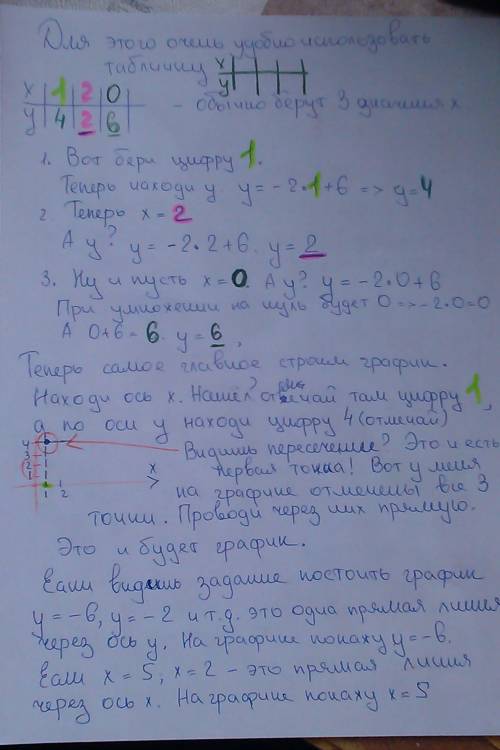 Для этого очень удобно использовать
табличку x y
x 1 2 0
y 4 2 6
- обычно берут 3 значения x
1. Вот бери цифру 1.
Теперь находи y. y = -2·1+6 => y=4
2. Теперь x = 2
А y? y = -2·2+6. y = 2
3. Ну и пусть x = 0. А y? y = -2·0+6
При умножении на нуль будет 0 => -2·0=0
А 0+6 = 6. y = 6,
Теперь самое главное строим график.
Находи ось x. Нашёл? отмечай там цифру 1,
а по оси y находи цифру 4 (отмечай)
Видишь пересечение? Это и есть
первая точка! Вот у меня
на графике отмечены все 3
точки. Проводи через них прямую.
4
3
2
1
1 2
x
Это и будет график.
Если видишь задание постоить график
y = -6, y = -2 и т.д. это одна прямая линия
через ось y. На графике покажу y = -6.
Если x = 5, x = 2 - это прямая линия
через ось x. На графике покажу x = 5